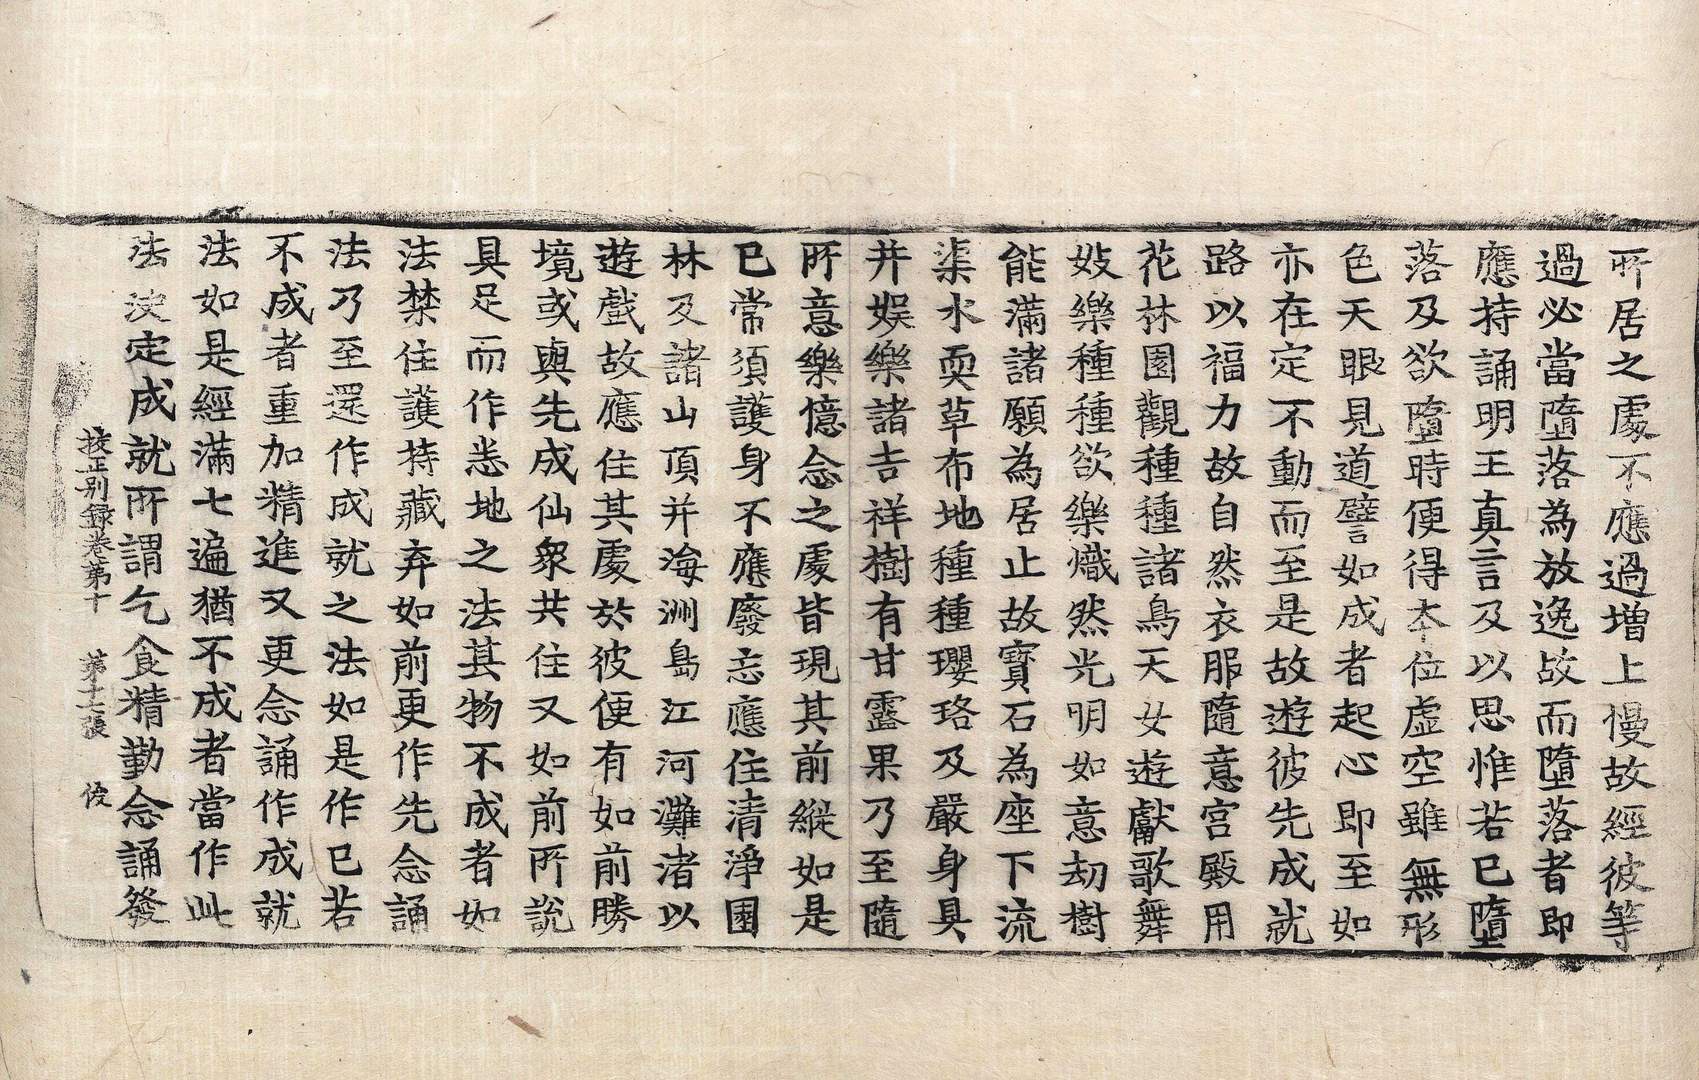 所居之處不應過增上慢故經彼等
過必當墮落為放逸故而墮落者即
應持誦明王真言及以思惟若已墮
落及欲墮時便得本位虛空雖無形
色天眼見道譬如成者起心即至如
亦在定不動而至是故遊彼先成就
路以福力故自然衣服隨意宮殿用
花林園觀種種諸鳥天女遊獻歌舞
妓樂種種欲樂熾然光明如意劫樹
能滿諸願為居止故寶石為座下流
渠水耎草布地種種瓔珞及嚴身具
井娛樂諸吉祥樹有甘露果乃至隨
所意樂憶念之處皆現其前縱如是
已常須護身不應廢忘應住清淨園
林及諸山頂并海洲島江河灘渚以
遊戲故應住其處於彼便有如前勝
境或與先成仙眾共住又如前所說
具足而作悉地之法其物不成者如
法禁住護持藏弃如前更作先念誦
法乃至還作成就之法如是作已若
不成者重加精進又更念誦作成就
法如是經滿七遍猶不成者當作此
法決定成就所謂乞食精勤念誦發
校正別錄卷第十 第十七張 俊